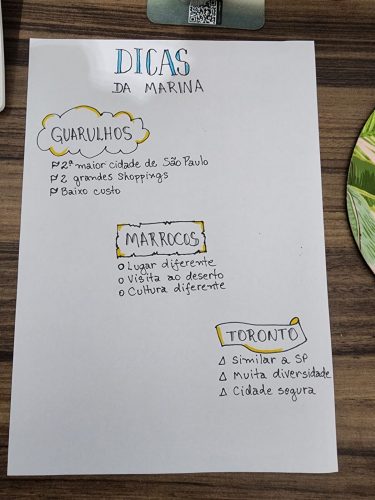 DICAS
DA MARINA
GUARULHOS
2ª maior cidade de São Paulo
2 grandes Shoppings
Baixo custo
MARROCOS
Lugar diferente
Visita ao deserto
Cultura diferente
TORONTO
Δ Similar a SP
Δ Muita diversidade
Δ Cidade segura